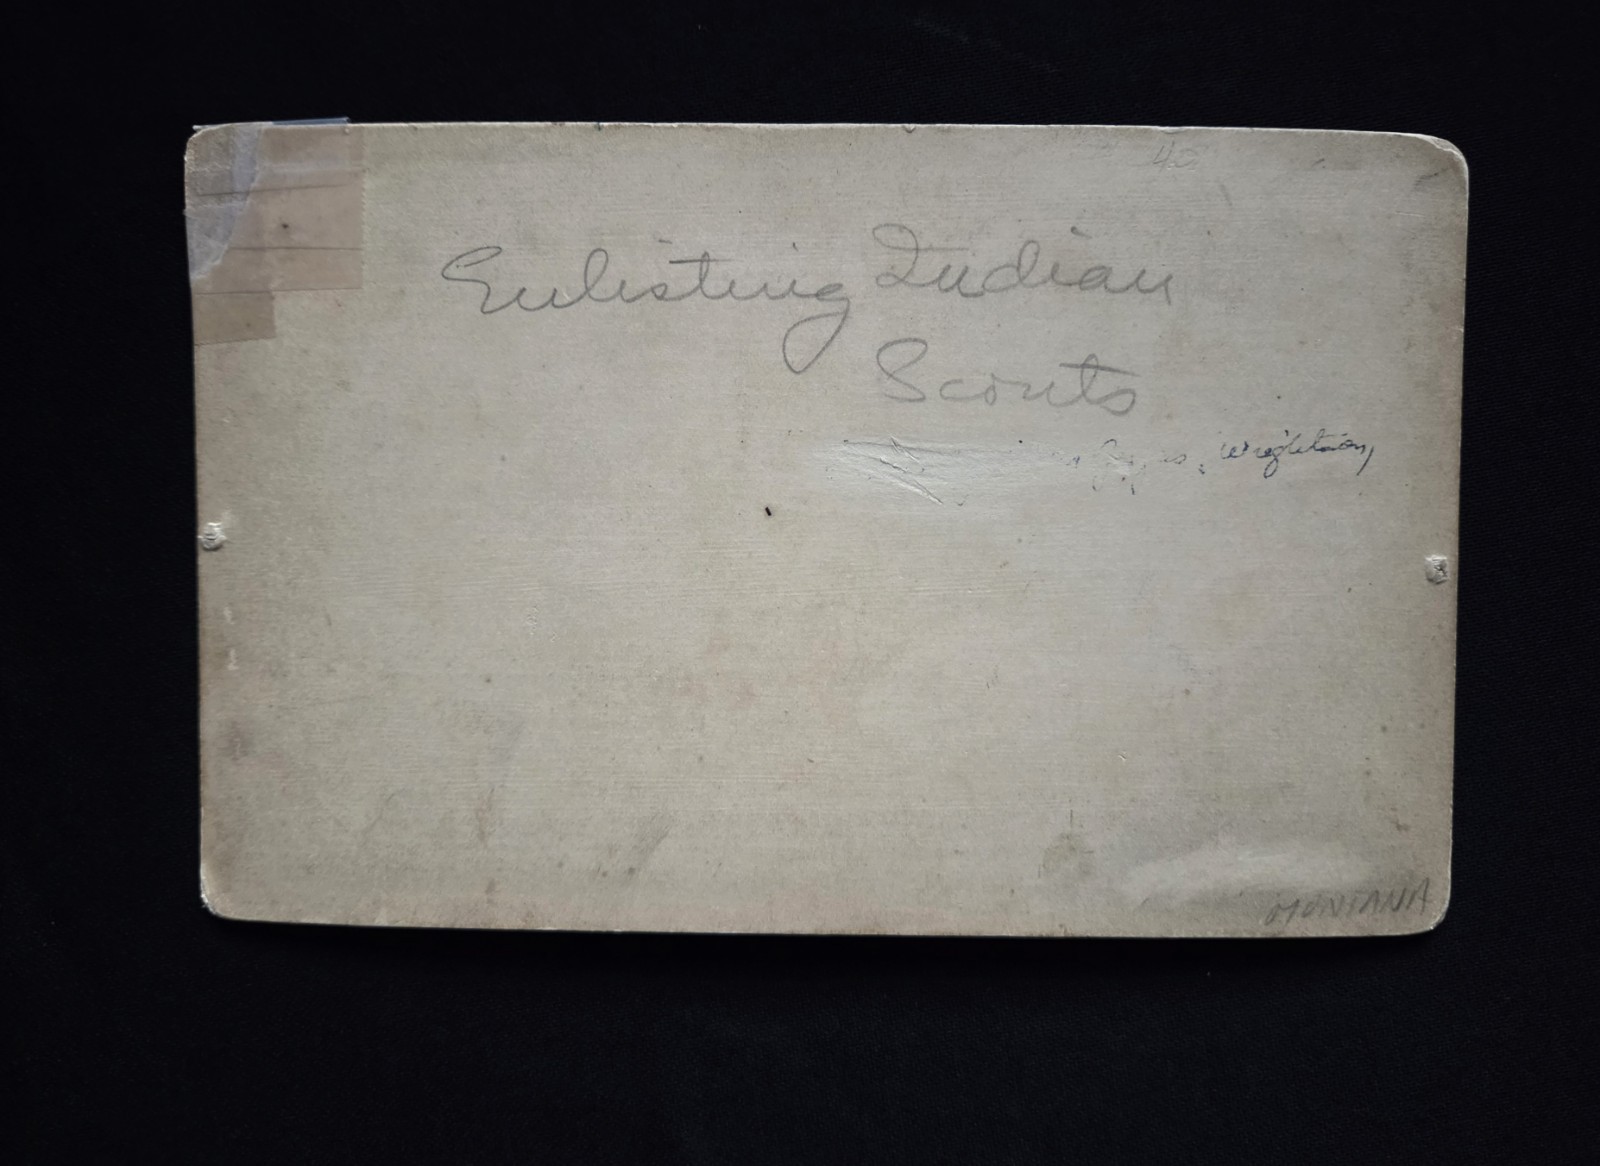 40
Enlisting Indian
Scouts
Wrightson,
MONTANA